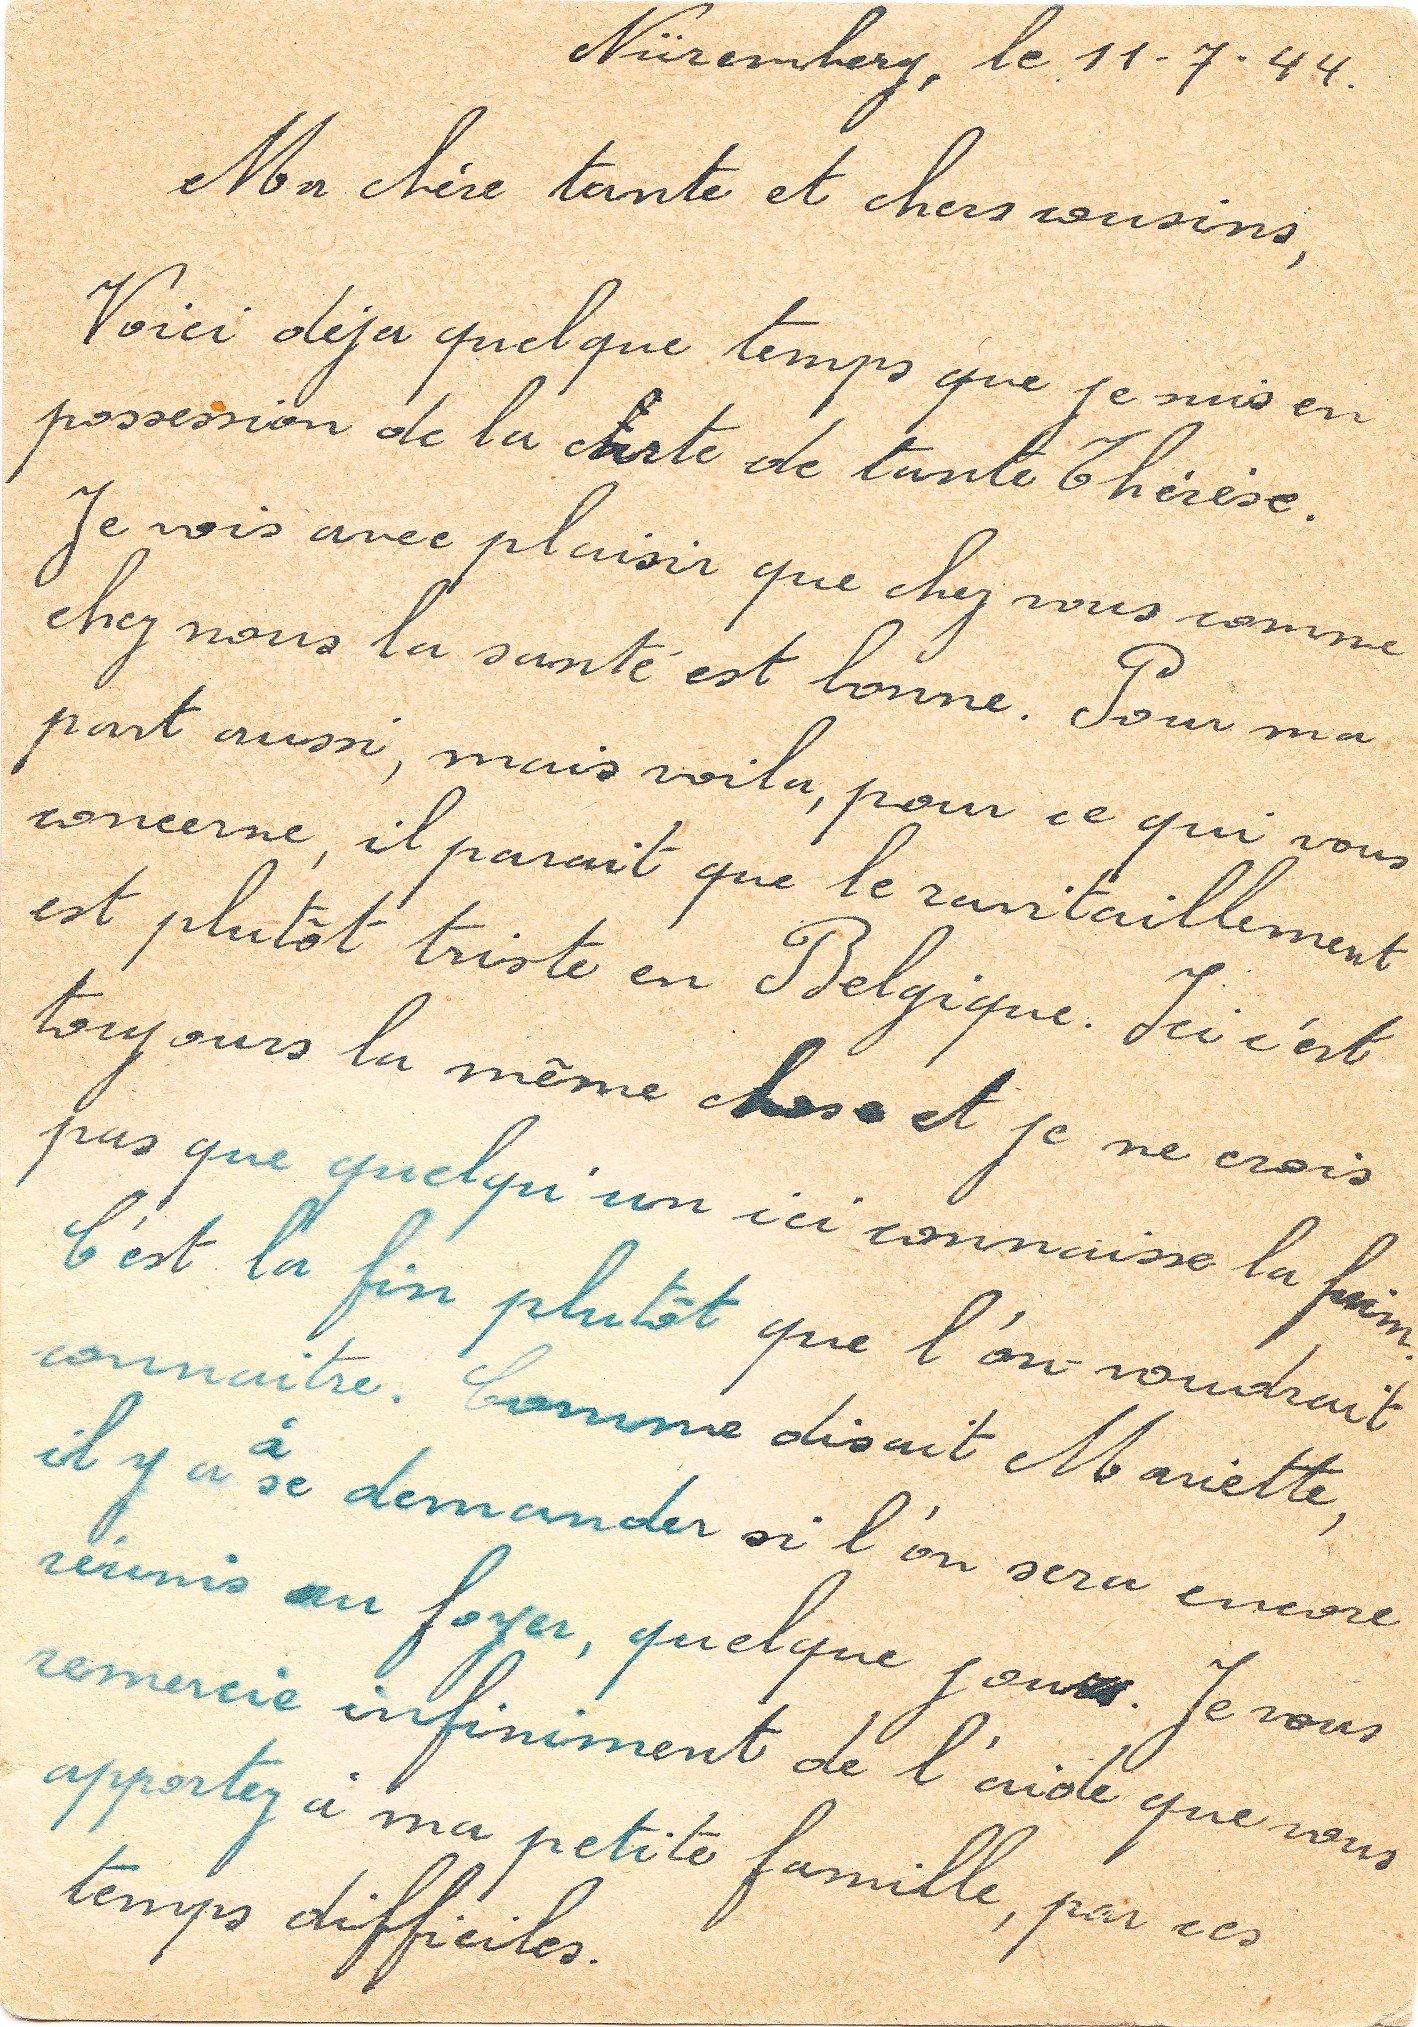 Nüremberg, le 11-7-44.
Ma chère tante et chers cousins,
Voici déja quelque temps que je suis en
possession de la carte de tante Thérèse.
Je vois avec plaisir que chez vous comme
chez nous la santé est bonne. Pour ma
part aussi, mais voila, pour ce qui vous
concerne, il parait que le ravitaillement
est plutôt triste en Belgique. Ici c'est
toujours la même chose et je ne crois
pas que quelqu'un ici connaisse la faim.
C'est la fin plutôt que l'on voudrait
connaitre. Comme disait Mariette,
il y a à se demander si l'on sera encore
réunis au foyer, quelque jour. Je vous
remercie infiniment de l'aide que vous
apportez à ma petite famille, par ces
temps difficiles.